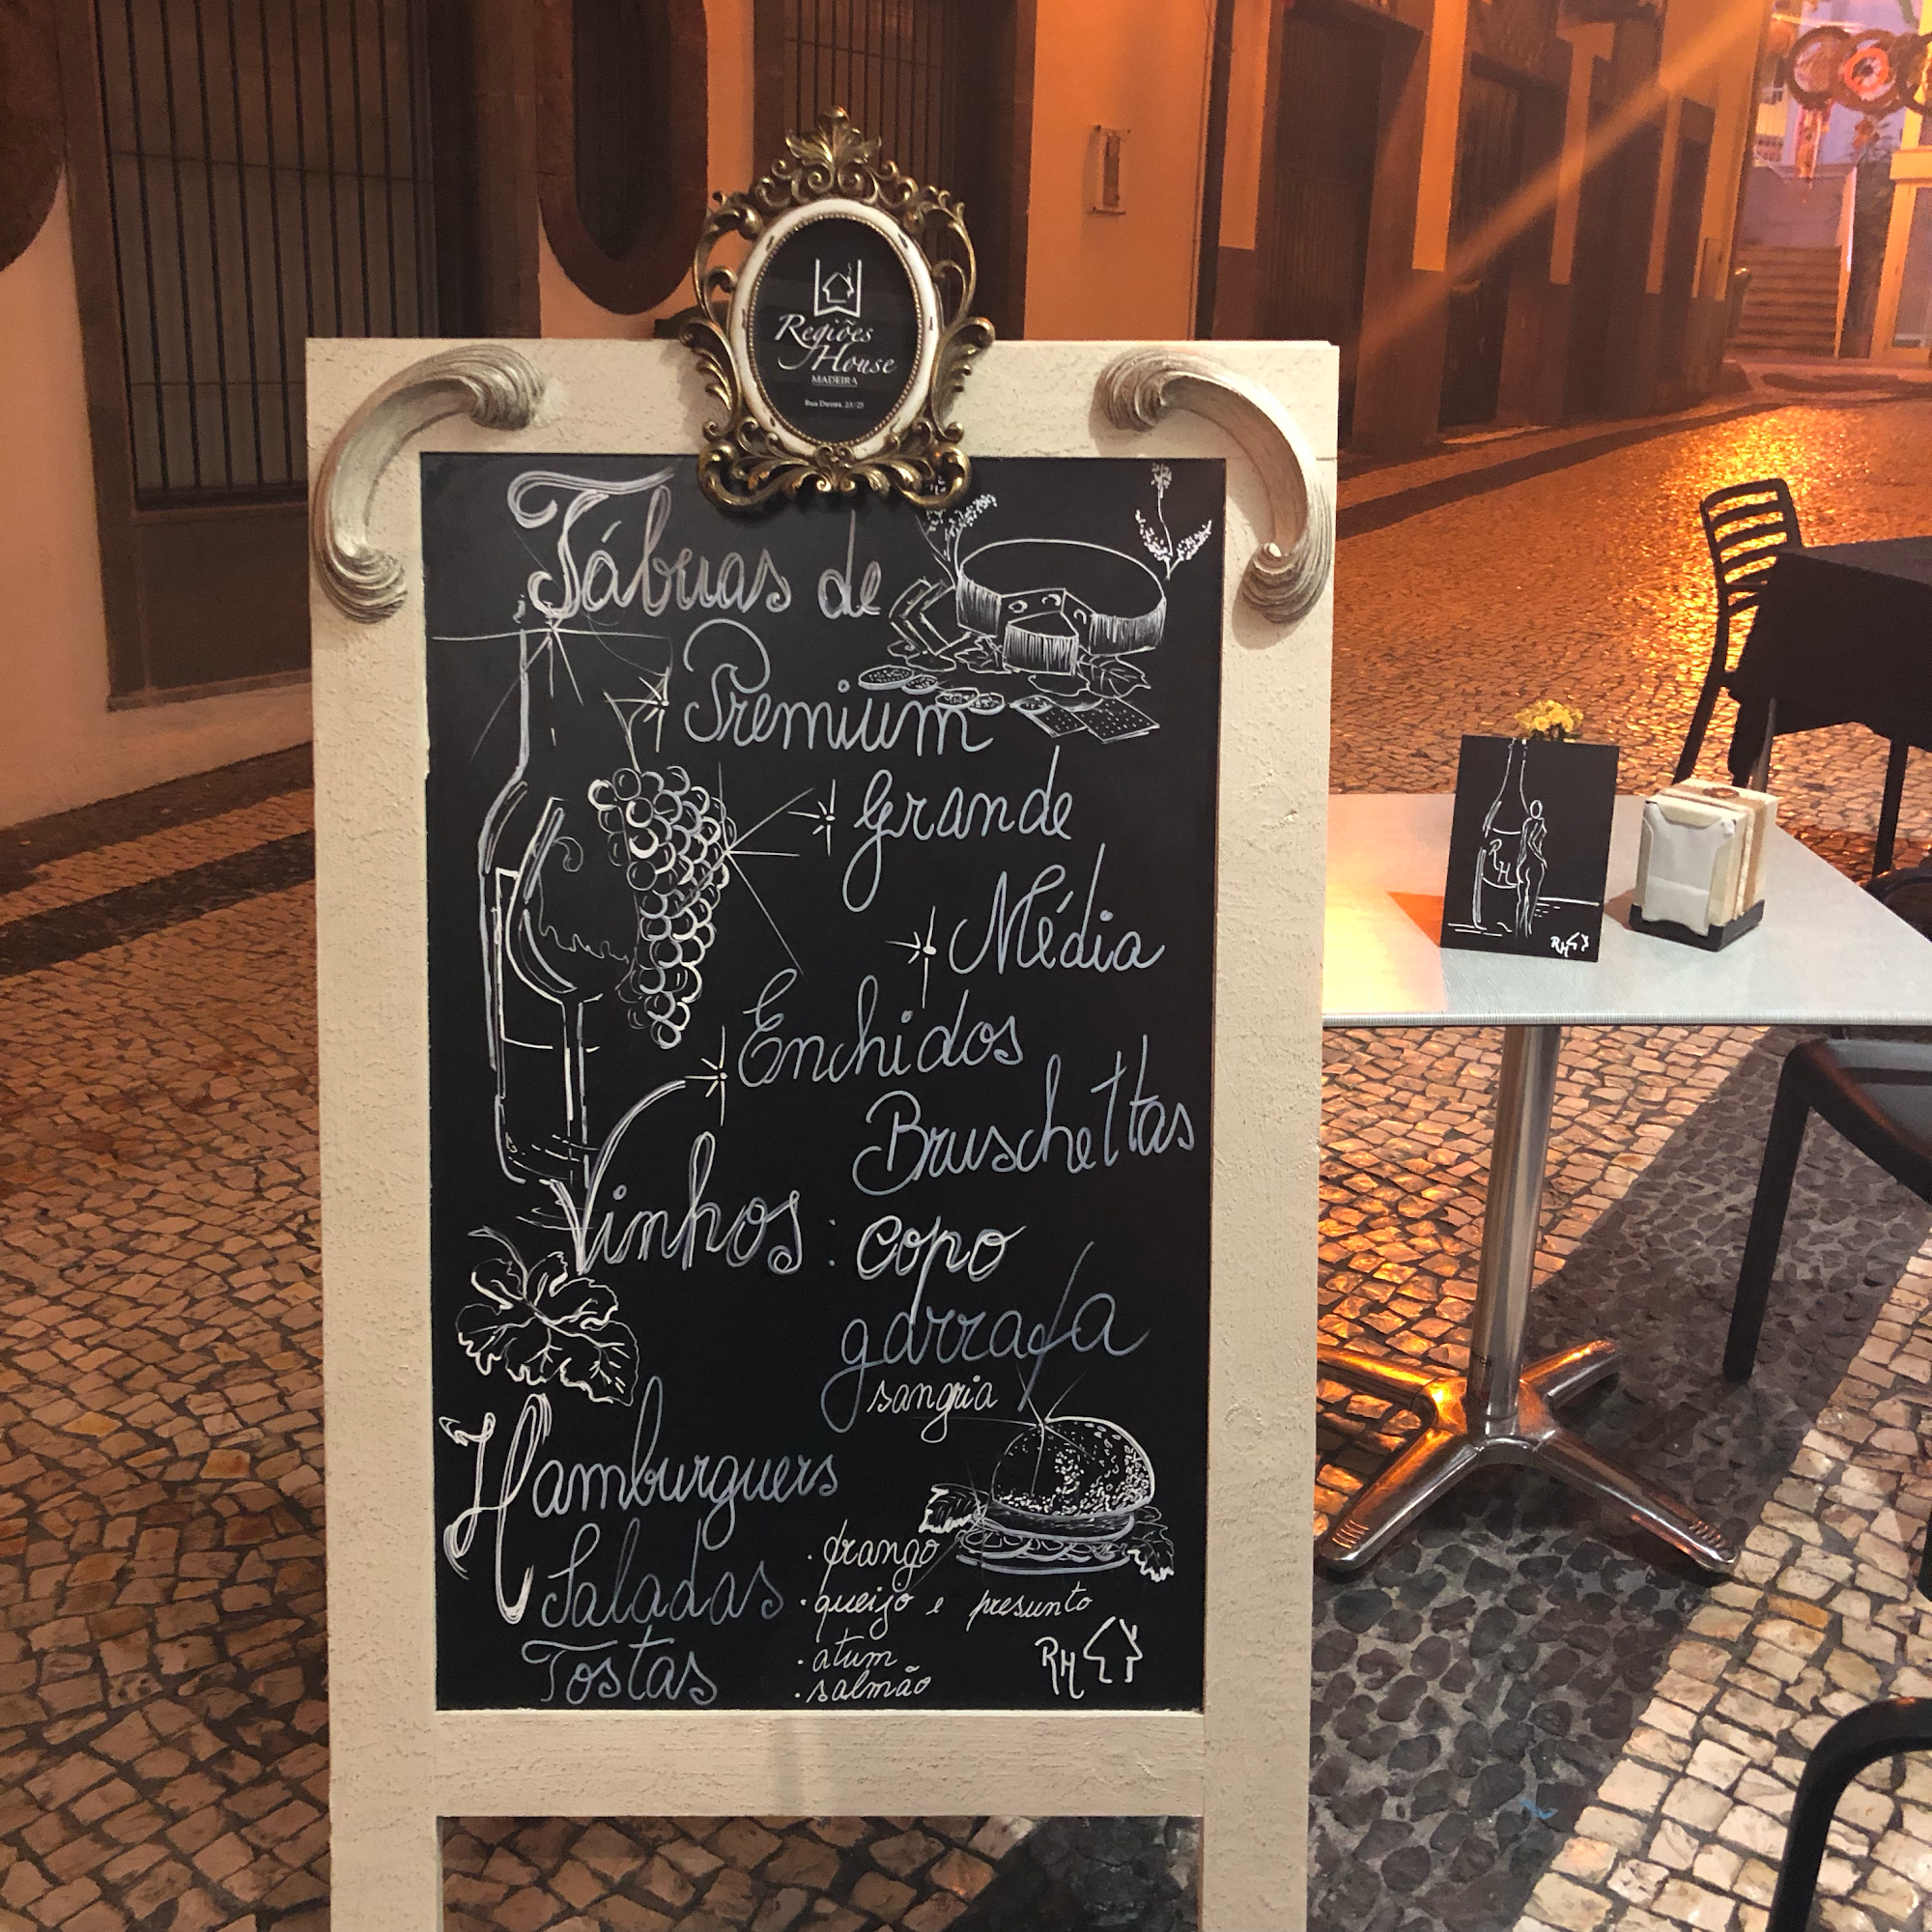 Regiões
House
MADEIRA
Rua Direita, 23/25
Tábuas de
Premium
Grande
Média
Enchidos
Bruschettas
Vinhos: copo
garrafa
sangria
Hamburguers
Saladas
Tostas
· frango
· queijo e presunto
· atum
· salmão
RH
RH
RH